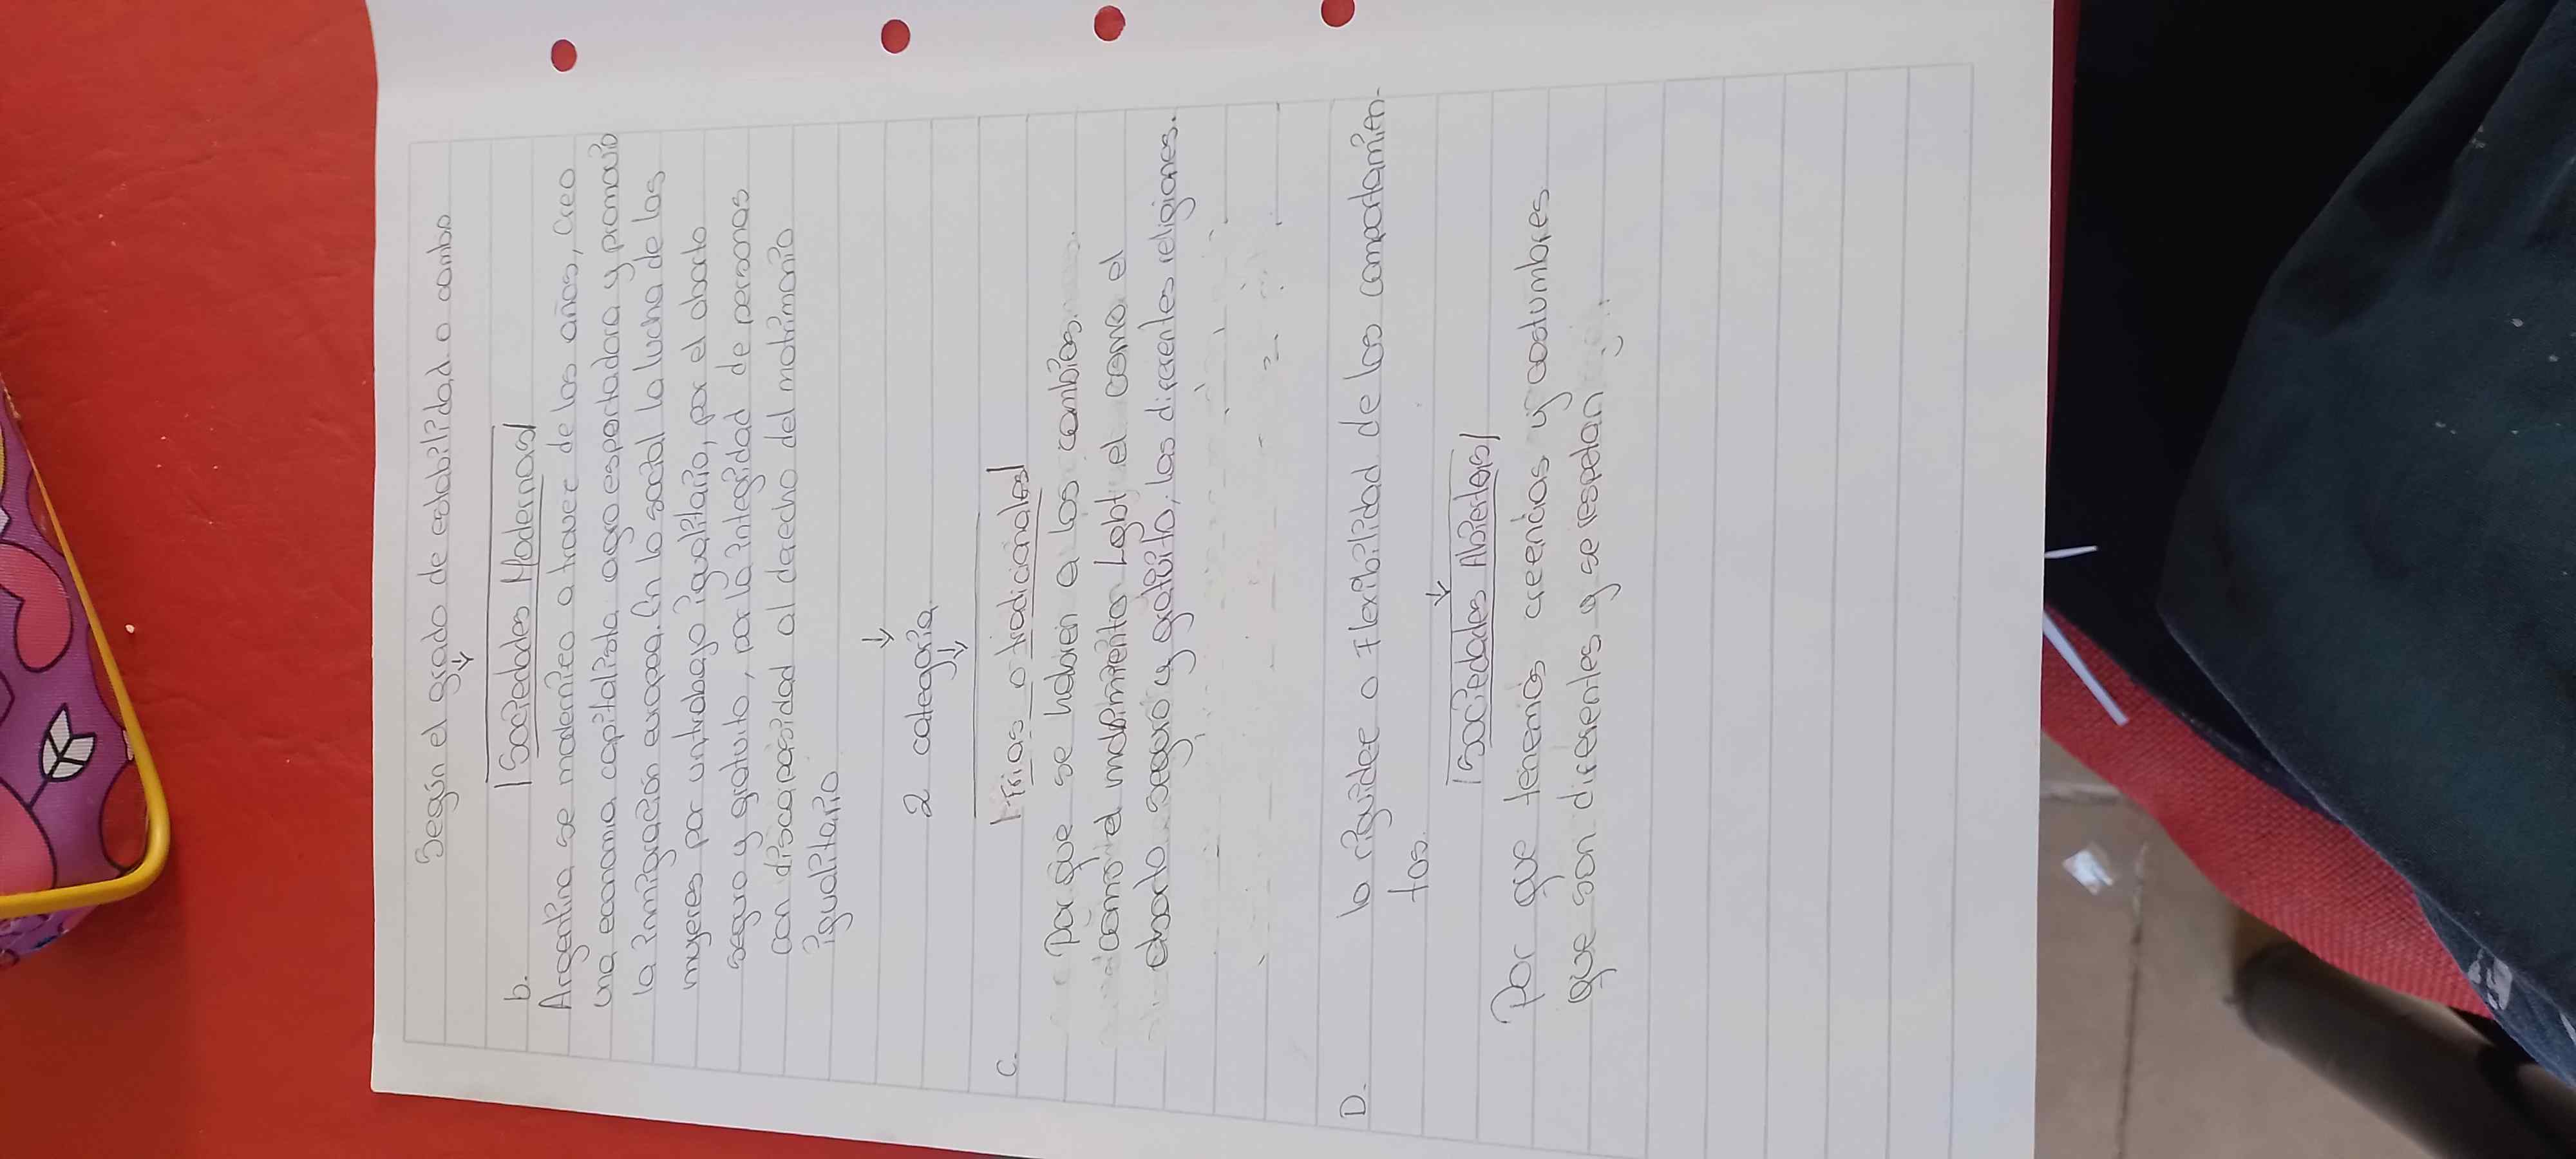 Según el grado de estabilidad o cambio
↓
b. |Sociedades Modernas|
Argentina se moderniza a travez de los años, creo
una economia capitalista agro esportadora y promovio
la inmigración europea. En lo social la lucha de las
mujeres por un trabajo igualitario, por el aborto
seguro y gratuito, por la integridad de personas
con discapasidad al derecho del matrimonio
igualitario
↓
2 categoria
↓
C. |Frias o tradicionales|
Por que se habren a los cambios.
como el indimiento Lgbt el como el
aborto seguro y gatuito, las diferentes religiones.
D. la riguidez o Flexibilidad de los comportamien-
tos.
↓
|Sociedades Abiertas|
Por que tenemos creencias y costumbres
que son diferentes y se respetan